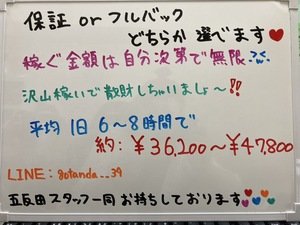 保証 or フルバック
どちらか 選べます♥
稼ぐ金額は自分次第で無限
沢山稼いで散財しちゃいましょ〜!!
平均1日6〜8時間で
約:¥36,200〜¥47,800
LINE:gotanda__39
五反田スタッフ一同 お持ちしております